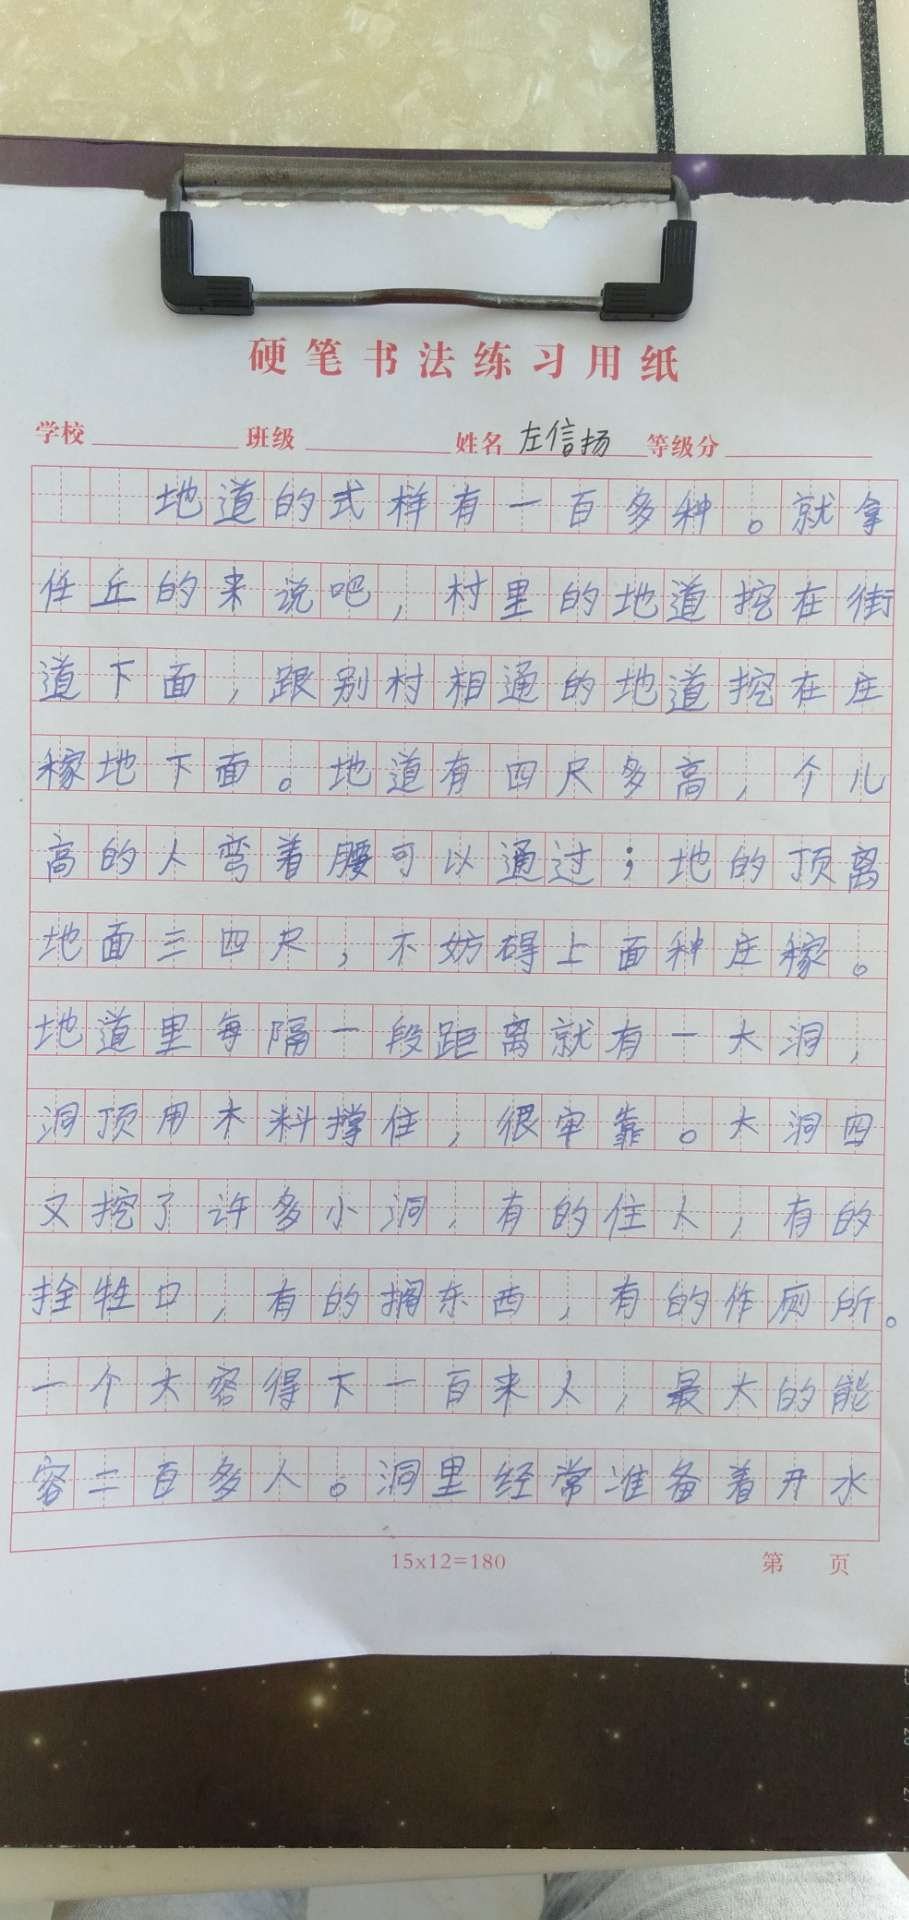 硬笔书法练习用纸
学校 班级 姓名 左信扬 等级分
地道的式样有一百多种。就拿
任丘的来说吧，村里的地道挖在街
道下面，跟别村相通的地道挖在庄
稼地下面。地道有四尺多高，个儿
高的人弯着腰可以通过；地的顶离
地面三四尺，不妨碍上面种庄稼。
地道里每隔一段距离就有一大洞，
洞顶用木料撑住，很牢靠。大洞四
又挖了许多小洞，有的住人，有的
拴牲口，有的搁东西，有的作厕所。
一个大容得下一百来人，最大的能
容二百多人。洞里经常准备着开水
15x12=180
第 页